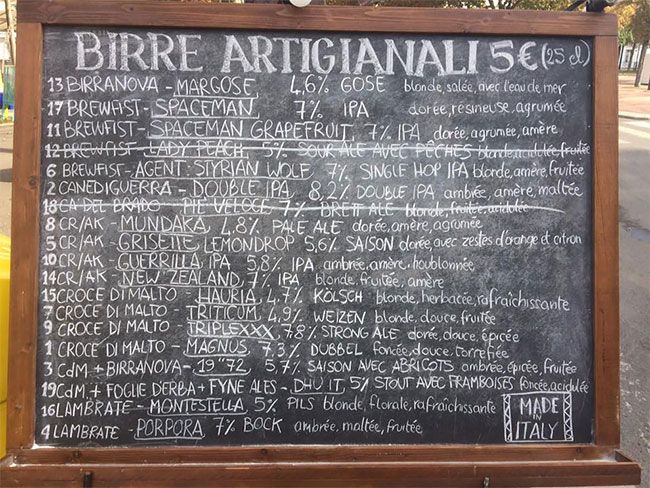 BIRRE ARTIGIANALI 5€ (25 cl)
13 BIRRANOVA - MARGOSE, 4,6% GOSE blonde, salée, avec l'eau de mer
17 BREWFIST - SPACEMAN 7% IPA dorée, résineuse, agrumée
11 BREWFIST - SPACEMAN GRAPEFRUIT, 7% IPA dorée, agrumée, amère
12 BREWFIST - LADY PEACH, 5% SOUR ALE AVEC PÊCHES blonde, acidulée, fruitée
6 BREWFIST - AGENT: STYRIAN WOLF, 7% SINGLE HOP IPA blonde, amère, fruitée
2 CANEDIGUERRA - DOUBLE IPA, 8,2% DOUBLE IPA ambrée, amère, maltée
18 CA' DEL BRADO - PIE VELOCE 7% BRETT ALE blonde, fruitée, acidulée
8 CR/AK - MUNDAKA, 4,8% PALE ALE dorée, amère, agrumée
5 CR/AK - GRISETTE LEMONDROP 5,6% SAISON dorée, avec zestes d'orange et citron
10 CR/AK - GUERRILLA, IPA 5,8% IPA ambrée, amère, houblonnée
14 CR/AK - NEW ZEALAND, 7% IPA blonde, fruitée, amère
15 CROCE DI MALTO - HAURIA, 4,7% KÖLSCH blonde, herbacée, rafraîchissante
7 CROCE DI MALTO - TRITICUM, 4,9% WEIZEN blonde, douce, fruitée
9 CROCE DI MALTO - TRIPLEXXX, 7,8% STRONG ALE dorée, douce, épicée
1 CROCE DI MALTO - MAGNUS, 7,3% DUBBEL foncée, douce, torrefiée
3 CdM + BIRRANOVA - 19"72, 5,7% SAISON AVEC ABRICOTS ambrée, épicée, fruitée
19 CdM + FOGLIE D'ERBA + FYNE ALES - DHU IT, 5% STOUT AVEC FRAMBOISES foncée, acidulée
16 LAMBRATE - MONTESTELLA, 5% PILS blonde, florale, rafraîchissante
4 LAMBRATE - PORPORA 7% BOCK ambrée, maltée, fruitée
MADE
IN
ITALY